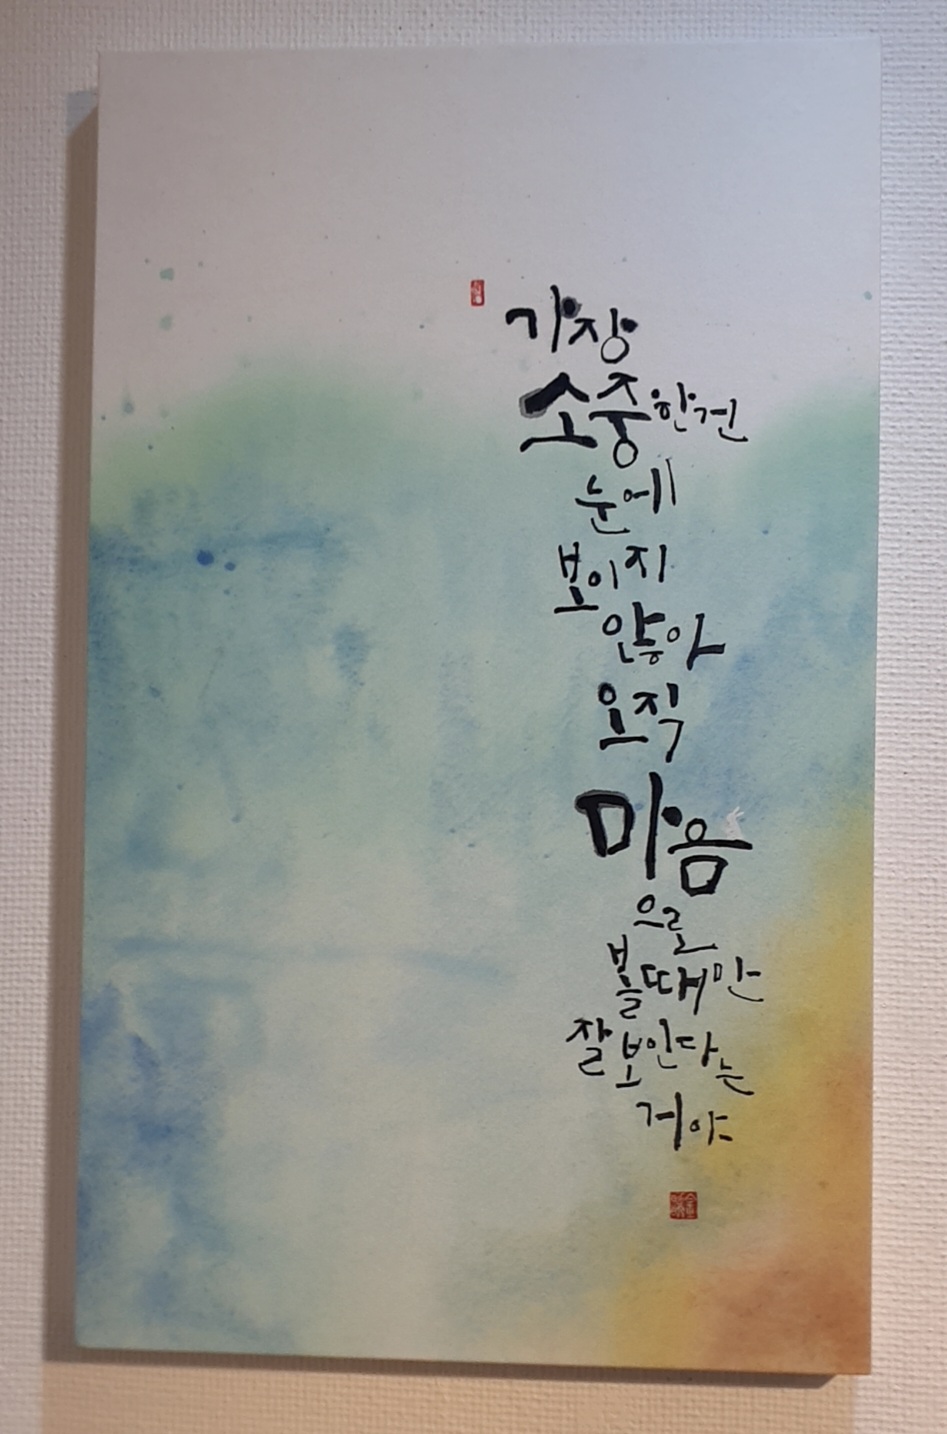 가장
소중한건
눈에
보이지
않아
오직
마음
으로
볼때만
잘보인다는
거야